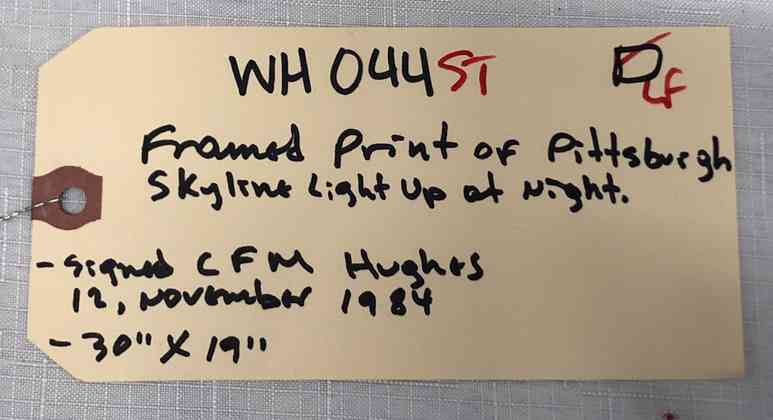 WH 044 ST
LF
Framed Print of Pittsburgh
Skyline Light Up at Night.
- Signed CFM Hughes
12, November 1984
- 30" X 19"